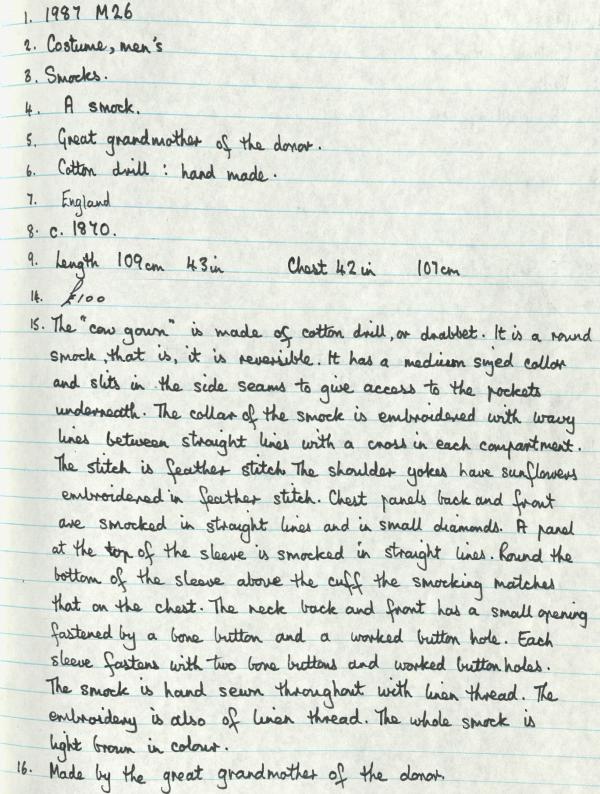 1. 1987 M26
2. Costume, men's
3. Smocks.
4. A smock.
5. Great grandmother of the donor.
6. Cotton drill : hand made.
7. England
8. c. 1870.
9. Length 109cm 43in Chest 42in 107cm
14. £100
15. The "cow gown" is made of cotton drill, or drabbet. It is a round
smock, that is, it is reversible. It has a medium sized collar
and slits in the side seams to give access to the pockets
underneath. The collar of the smock is embroidered with wavy
lines between straight lines with a cross in each compartment.
The stitch is feather stitch. The shoulder yokes have sunflowers
embroidered in feather stitch. Chest panels back and front
are smocked in straight lines and in small diamonds. A panel
at the top of the sleeve is smocked in straight lines. Round the
bottom of the sleeve above the cuff the smocking matches
that on the chest. The neck back and front has a small opening
fastened by a bone button and a worked button hole. Each
sleeve fastens with two bone buttons and worked buttonholes.
The smock is hand sewn throughout with linen thread. The
embroidery is also of linen thread. The whole smock is
light brown in colour.
16. Made by the great grandmother of the donor.